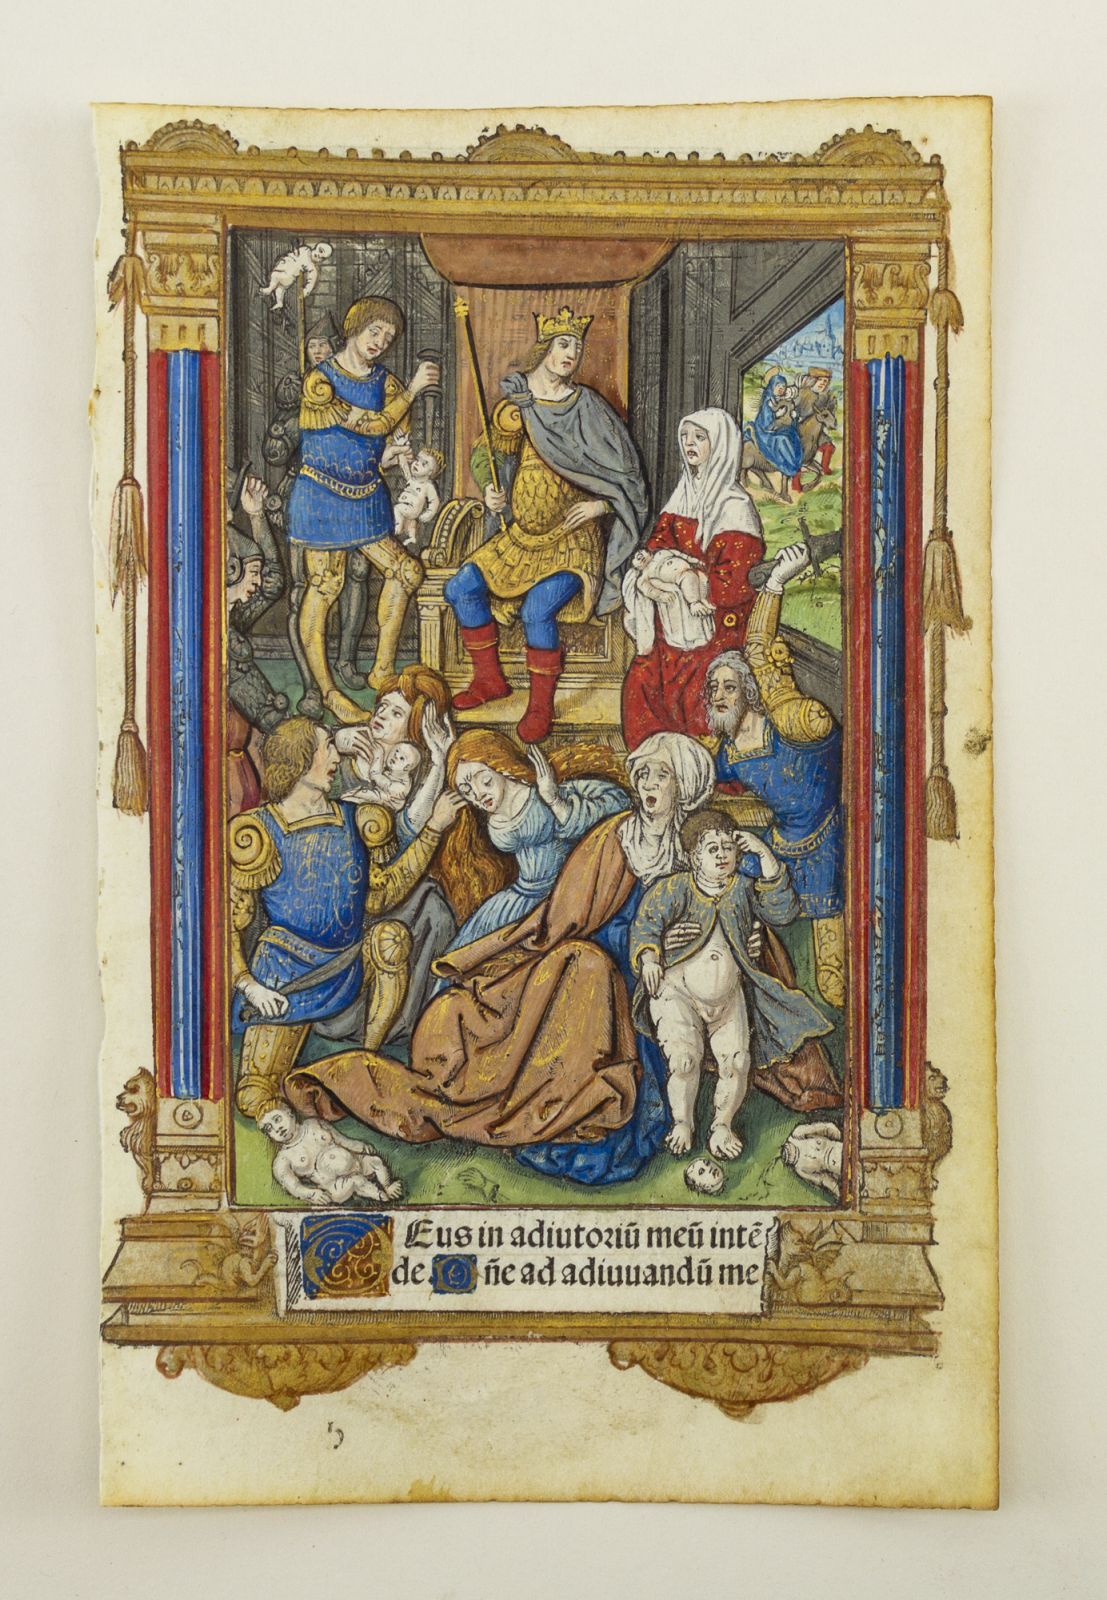 Deus in adiutoriū meū intē
de. Dñe ad adiuuandū me